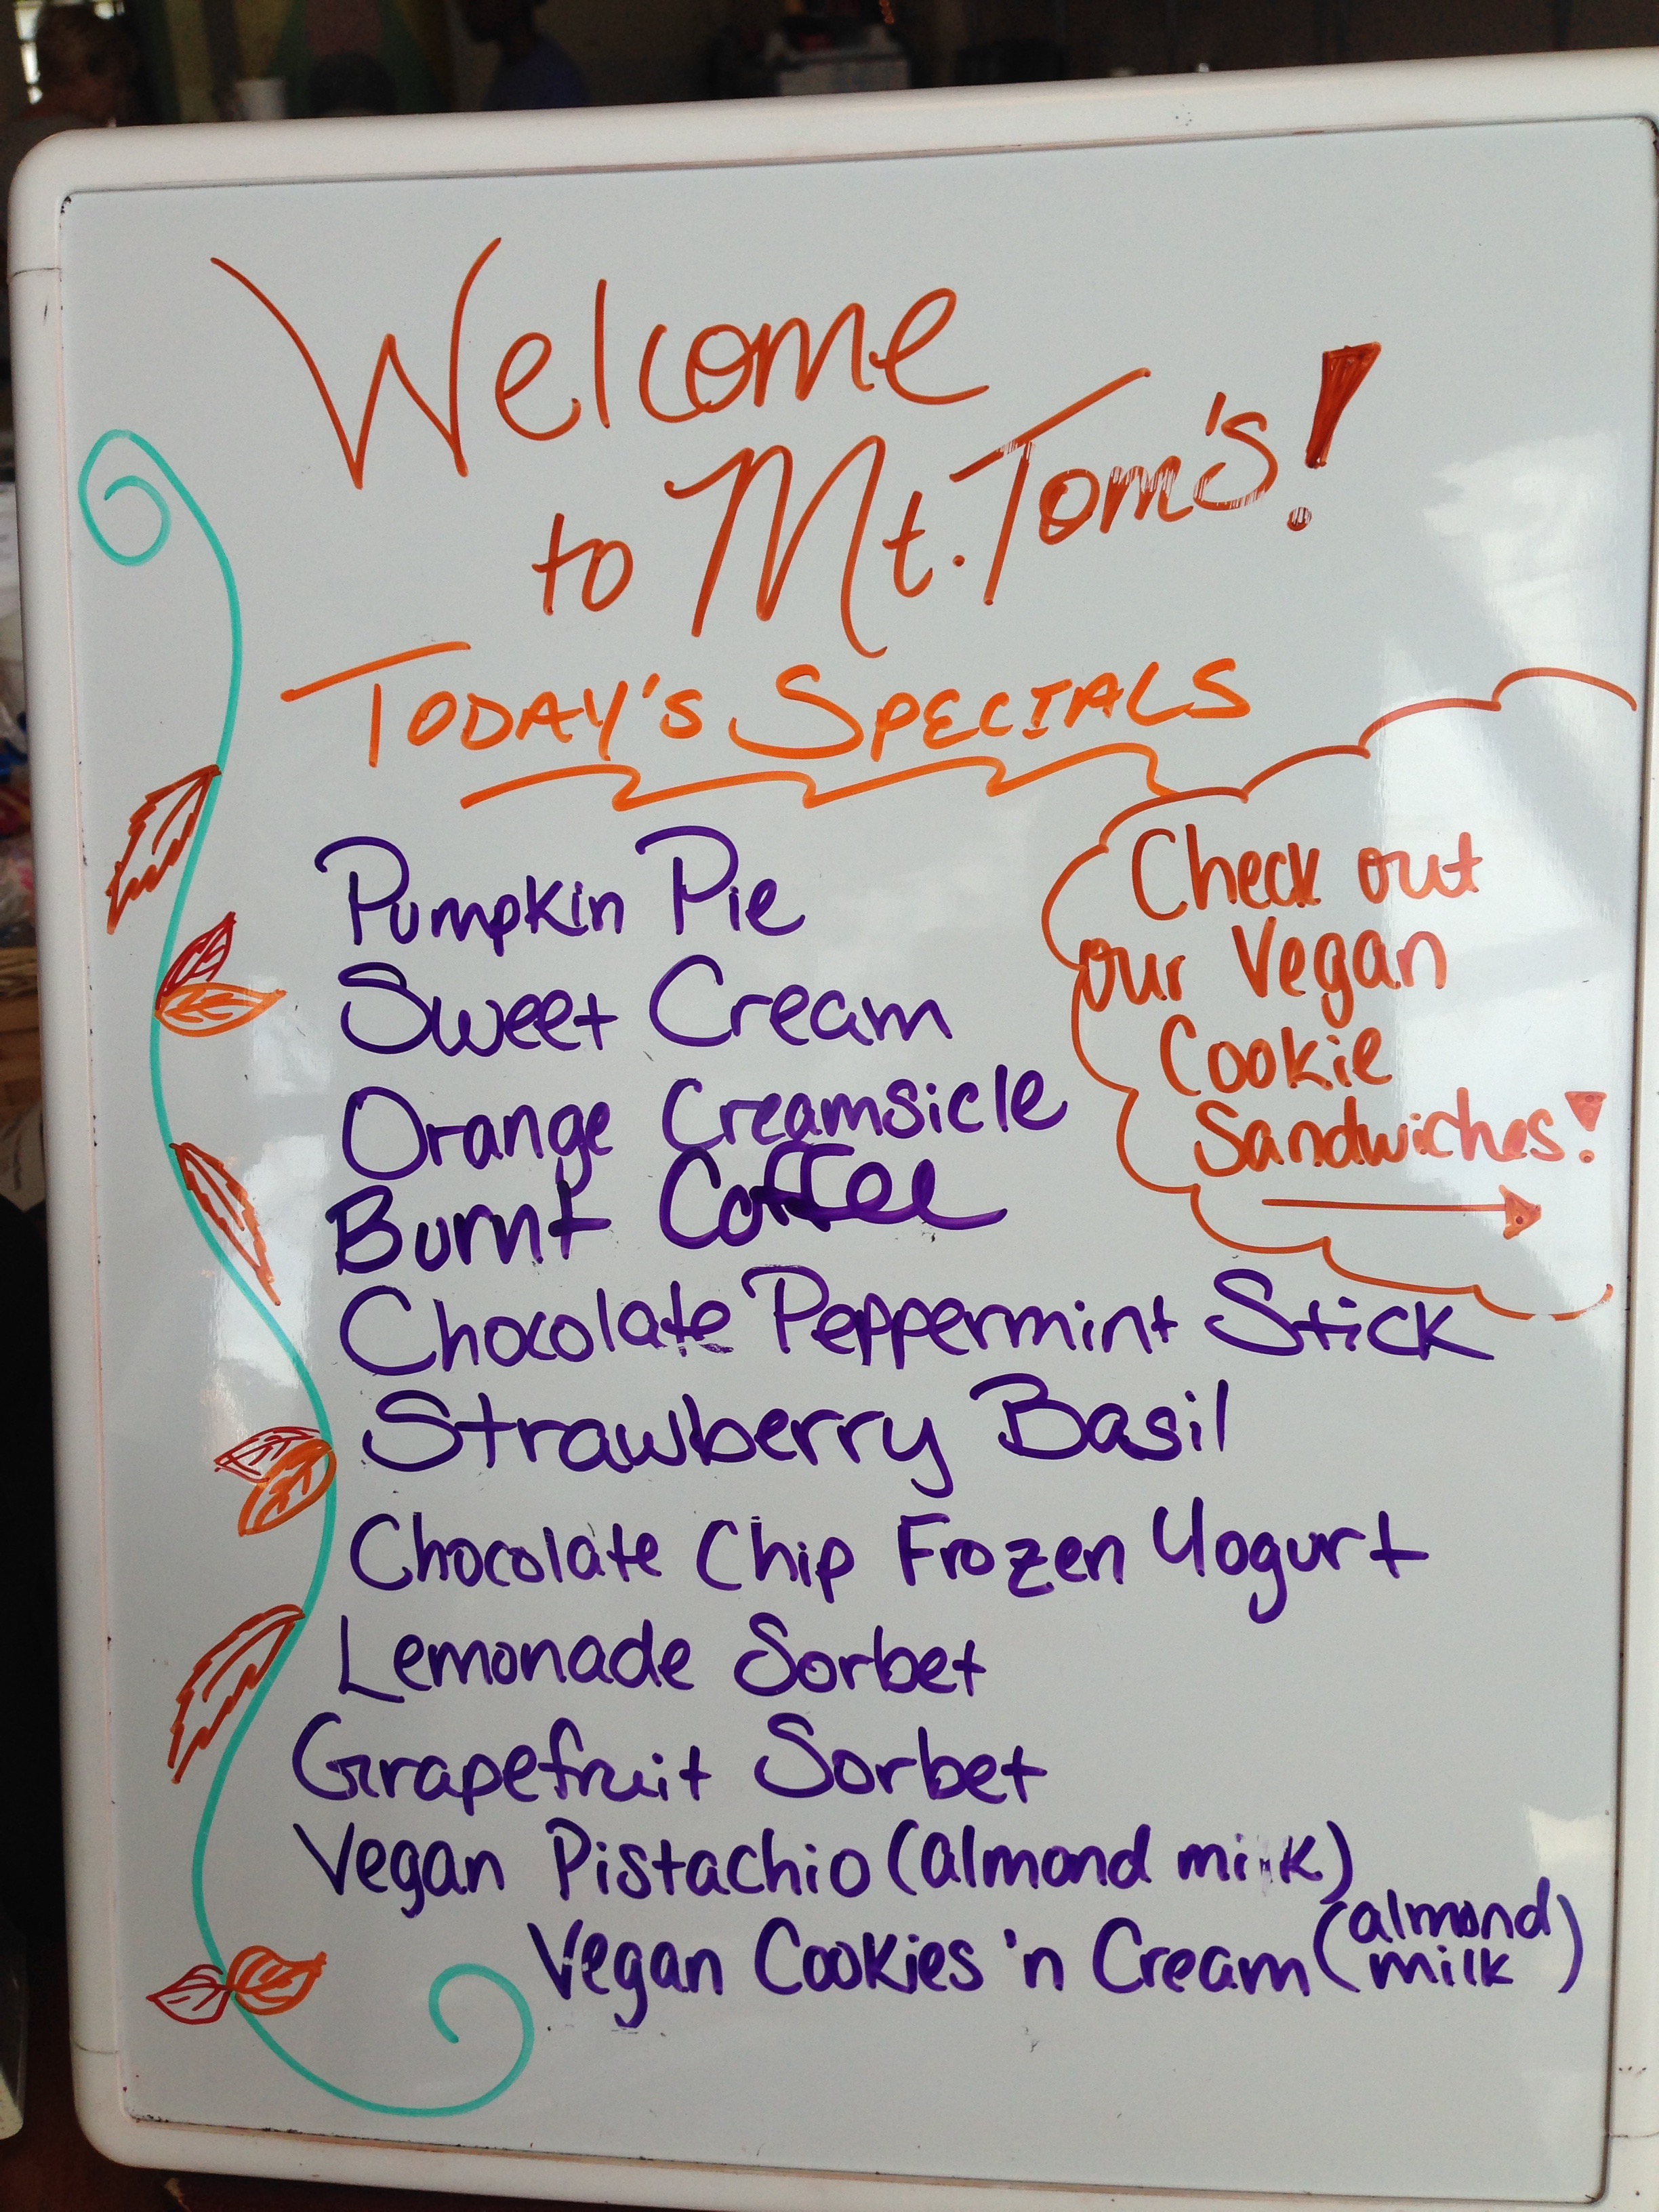 Welcome
to Mt. Tom's!
TODAY'S SPECIALS
Pumpkin Pie
Sweet Cream
Orange Creamsicle
Burnt Coffee
Chocolate Peppermint Stick
Strawberry Basil
Chocolate Chip Frozen Yogurt
Lemonade Sorbet
Grapefruit Sorbet
Vegan Pistachio (almond milk)
Vegan Cookies 'n Cream (almond
milk)
Check out
our Vegan
Cookie
Sandwiches!